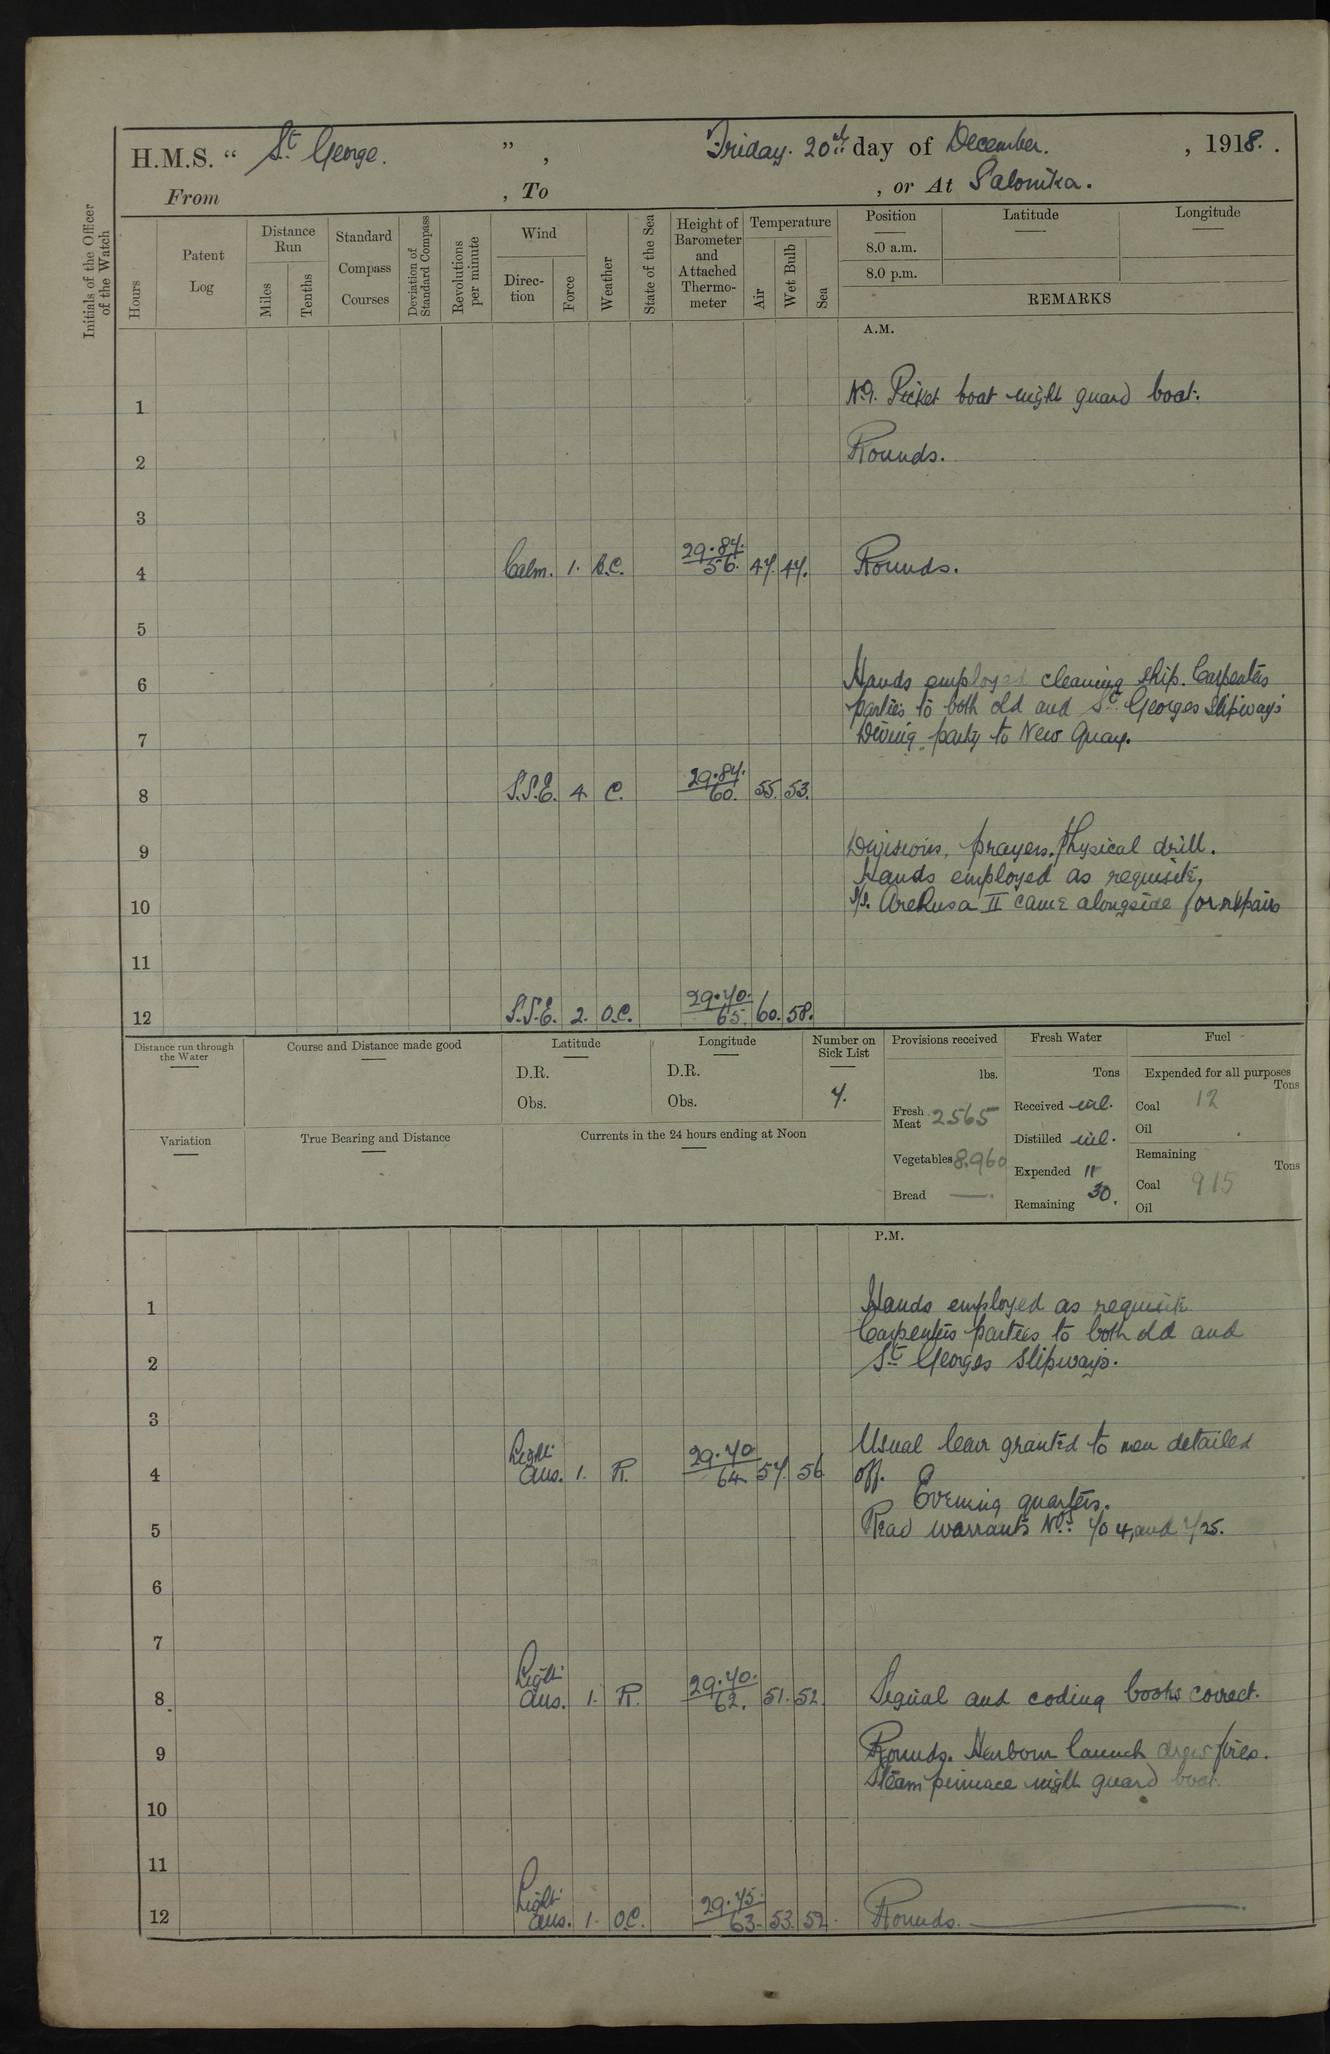 H.M.S. “ St. George. ” , Friday. 20th day of December. , 1918. .
From , To , or At Salonika.
Initials of the Officer of the Watch
Hours
Patent Log
Distance Run
Miles
Tenths
Standard Compass Courses
Deviation of Standard Compass
Revolutions per minute
Wind
Direc- tion
Force
Weather
State of the Sea
Height of Barometer and Attached Thermo- meter
Temperature
Air
Wet Bulb
Sea
Position
Latitude
Longitude
8.0 a.m.
8.0 p.m.
REMARKS
A.M.
1 Picket boat night guard boat.
2 Rounds.
3
4 Calm. 1. B.C. 29.84. 56. 47. 47. Rounds.
5
6 Hands employed cleaning ship. Carpenters
parties to both old and St. Georges Slipways
7 Diving party to New Quay.
8 S.S.E. 4. C. 29.84. 60. 55. 53.
9 Divisions, prayers. Physical drill.
Hands employed as requisite,
10 Arethusa II came alongside for repairs
11
12 S.S.E. 2. O.C. 29.70. 65. 60. 58.
Distance run through the Water
Course and Distance made good
Latitude
D.R.
Obs.
Longitude
D.R.
Obs.
Number on Sick List
7.
Provisions received
lbs.
Fresh Meat 2565
Vegetables 8.960
Bread —.
Fresh Water
Tons
Received nil.
Distilled nil.
Expended 11
Remaining 30.
Fuel
Expended for all purposes
Tons
Coal 12
Oil
Remaining
Tons
Coal 915
Oil
Variation
True Bearing and Distance
Currents in the 24 hours ending at Noon
P.M.
1 Hands employed as requisite
Carpenters parties to both old and
2 St. Georges Slipways.
3
Usual leave granted to men detailed
4 Light airs. 1. R. 29.70 64. 57. 56. off.
Evening quarters.
5 Read warrants Nos. 704, and 725.
6
7
8 Light airs. 1. R. 29.70. 62. 51. 52. Signal and coding books correct.
9 Rounds. Harbour launch draws fires.
Steam pinnace night guard boat.
10
11
12 Light airs. 1. O.C. 29.75. 63. 53. 52. Rounds.